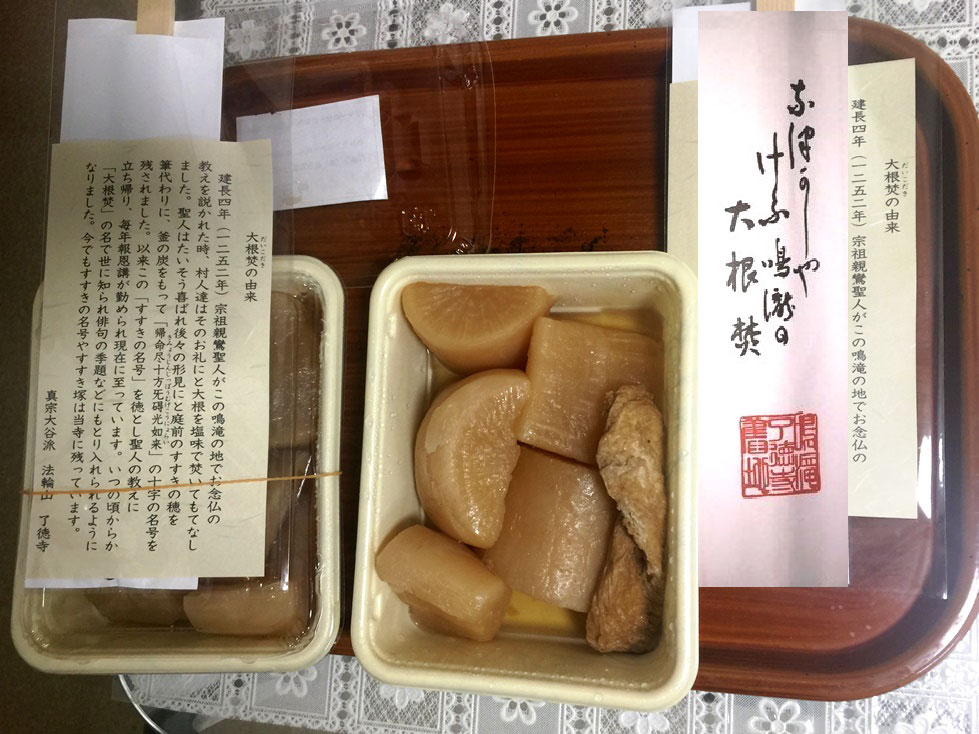 だいこだき
大根焚の由来
建長四年(一二五二年)宗祖親鸞聖人がこの鳴滝の地でお念仏の
けふ鳴瀧の
大根焚
だいこだき
大根焚の由来
建長四年(一二五二年)宗祖親鸞聖人がこの鳴滝の地でお念仏の
教えを説かれた時、村人達はそのお礼にと大根を塩味で焚いてもてなし
ました。聖人はたいそう喜ばれ後々の形見にと庭前のすすきの穂を
筆代わりに、釜の炭をもって「帰命尽十方旡碍光如来」の十字の名号を
残されました。以来この「すすきの名号」を徳とし聖人の教えに
立ち帰り、毎年報恩講が勤められ現在に至っています。いつの頃からか
「大根焚」の名で世に知られ俳句の季題などにもとり入れられるように
なりました。今でもすすきの名号やすすき塚は当寺に残っています。
真宗大谷派 法輪山 了徳寺